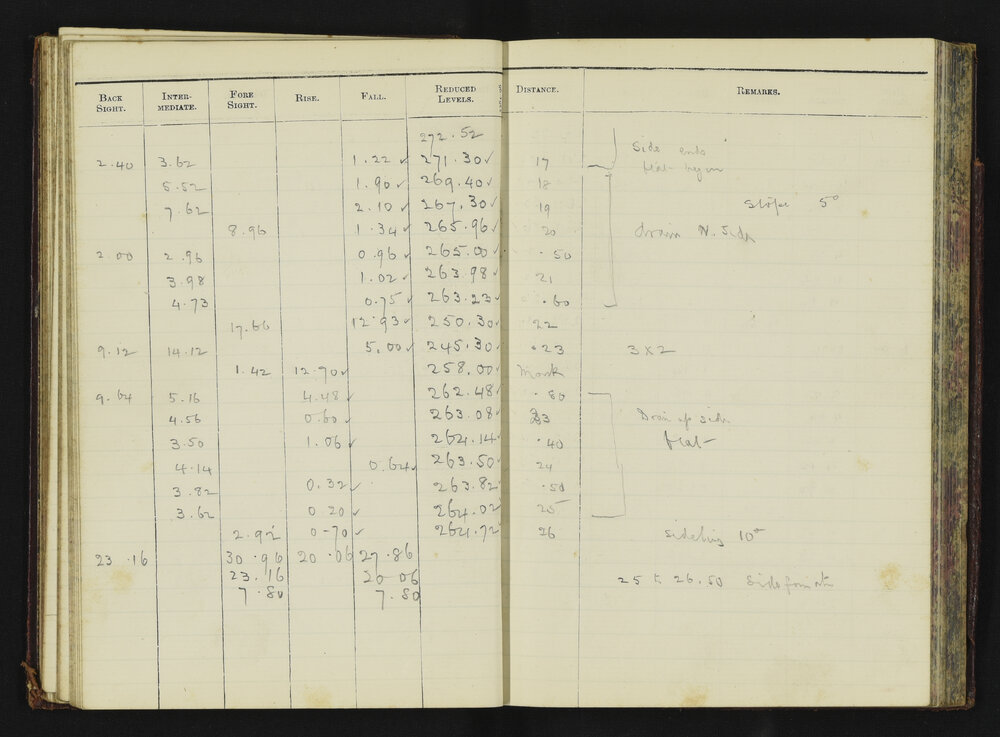 BACK SIGHT. INTER-MEDIATE. FORE SIGHT. RISE. FALL. REDUCED LEVELS. DISTANCE. REMARKS.
272.52
Side ends
2.40 3.62 1.22 ✓ 271.30 ✓ 17 flat began
5.52 1.90 ✓ 269.40 ✓ 18
7.62 2.10 ✓ 267.30 ✓ 19 Slope 5°
8.96 1.34 ✓ 265.96 ✓ 20 drain N. Side
2.00 2.96 0.96 ✓ 265.00 ✓ .50
3.98 1.02 ✓ 263.98 ✓ 21
4.73 0.75 ✓ 263.23 ✓ .60
17.66 12.93 ✓ 250.30 ✓ 22
9.12 14.12 5.00 ✓ 245.30 ✓ .23 3 x 2
1.42 12.70 ✓ 258.00 ✓ Mark
9.64 5.16 4.48 ✓ 262.48 ✓ .80
4.56 0.60 ✓ 263.08 ✓ 23 Drain up side
3.50 1.06 ✓ 264.14 ✓ .40 flat
4.14 0.64 ✓ 263.50 ✓ 24
3.82 0.32 ✓ 263.82 ✓ .50
3.62 0.20 ✓ 264.02 ✓ 25
2.92 0-70 ✓ 264.72 ✓ 26 Sideling 10°
23.16 30.96 20.06 27.86
23.16 20 06 25 to 26.50 Side from
7.80 7.80